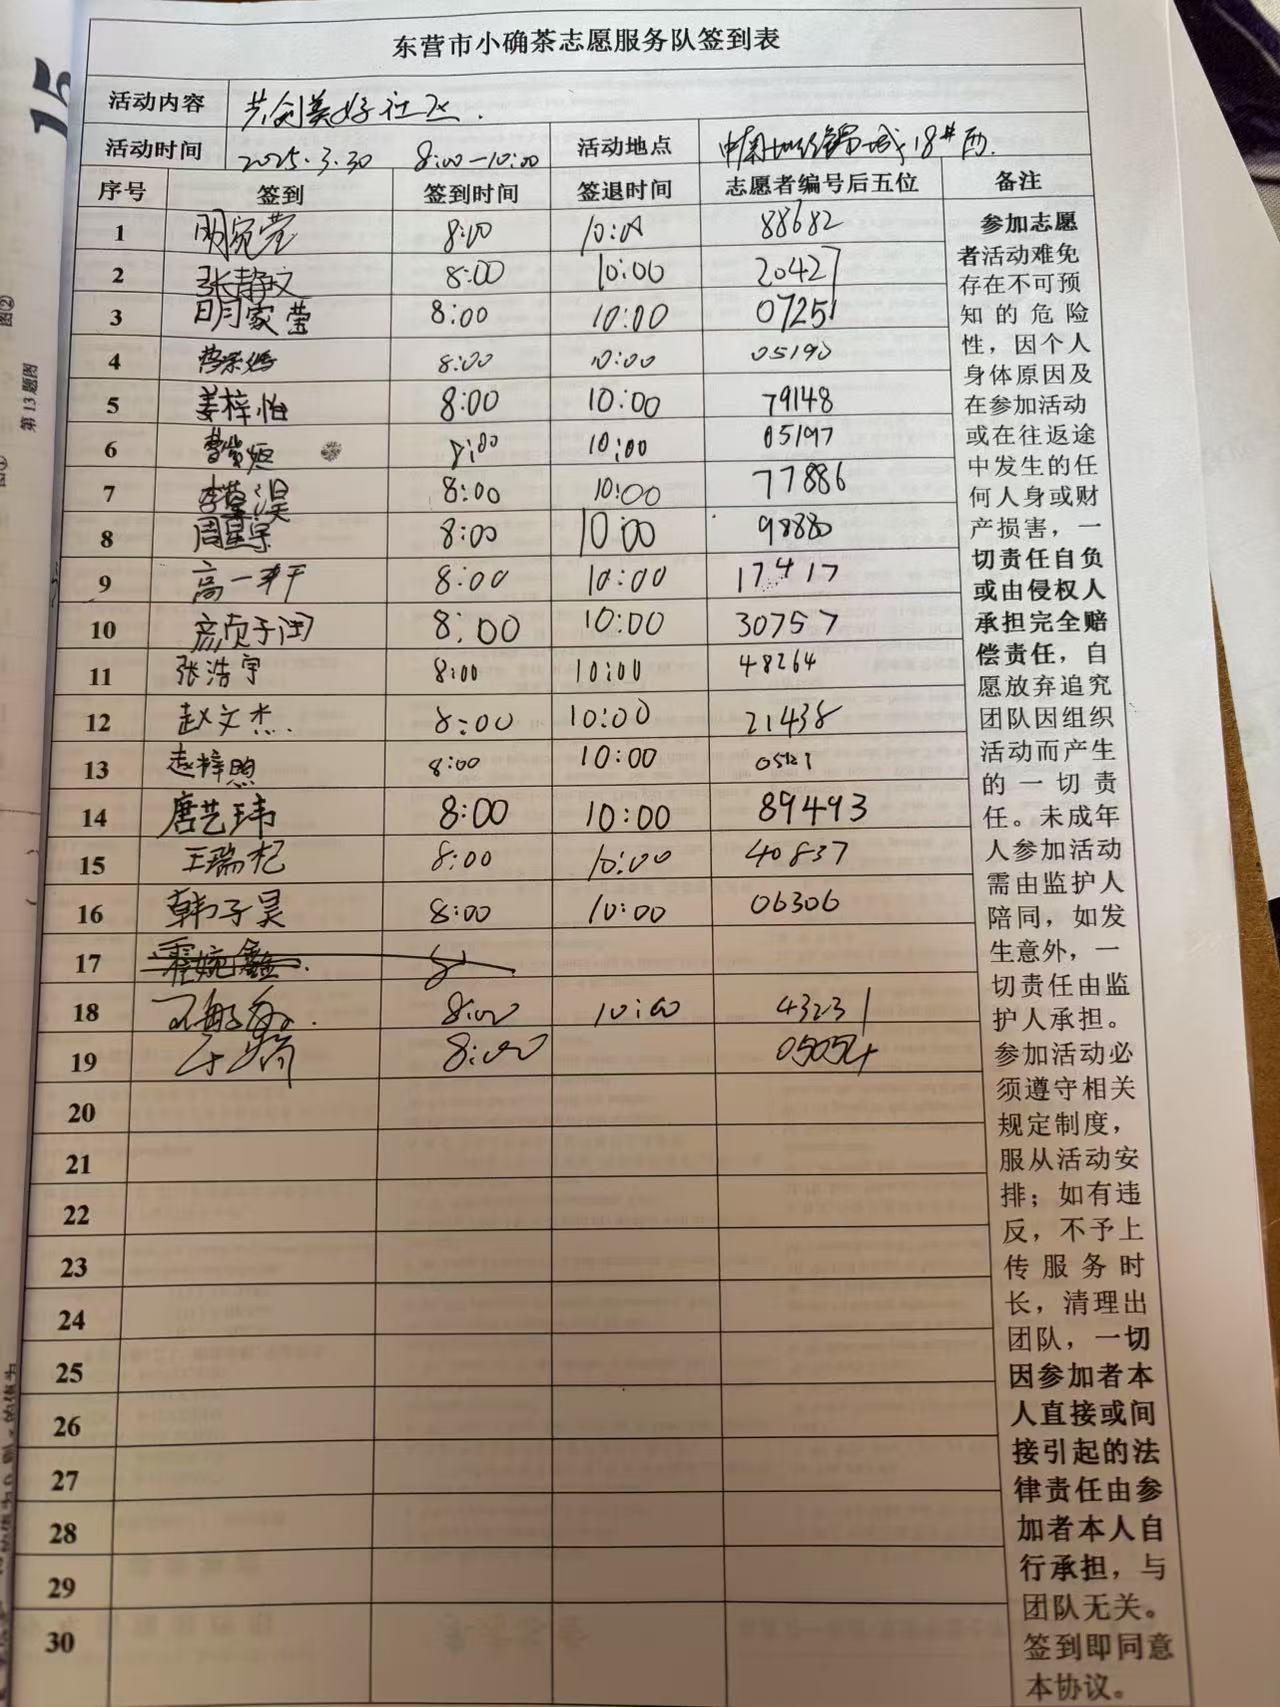 东营市小确茶志愿服务队签到表
活动内容 共创美好社区.
活动时间 2025.3.30 8:00—10:00 活动地点 18#西.
序号 签到 签到时间 签退时间 志愿者编号后五位 备注
1 明宛莹 8:00 10:00 88682
2 张静文 8:00 10:00 20427
3 明家莹 8:00 10:00 07251
4 8:00 10:00 05190
5 姜梓怡 8:00 10:00 79148
6 8:00 10:00 05197
7 8:00 10:00 77886
8 周星宇 8:00 10:00 98880
9 高一轩 8:00 10:00 17417
10 8:00 10:00 30757
11 张浩宇 8:00 10:00 48264
12 赵文杰. 8:00 10:00 21438
13 8:00 10:00 05121
14 唐艺玮 8:00 10:00 89493
15 王瑞杞 8:00 10:00 40837
16 韩子昊 8:00 10:00 06306
17 8
18 8:00 10:00 43231
19 8:00 05054
20
21
22
23
24
25
26
27
28
29
30
参加志愿
者活动难免
存在不可预
知的危险
性，因个人
身体原因及
在参加活动
或在往返途
中发生的任
何人身或财
产损害，一
切责任自负
或由侵权人
承担完全赔
偿责任，自
愿放弃追究
团队因组织
活动而产生
的一切责
任。未成年
人参加活动
需由监护人
陪同，如发
生意外，一
切责任由监
护人承担。
参加活动必
须遵守相关
规定制度，
服从活动安
排；如有违
反，不予上
传服务时
长，清理出
团队，一切
因参加者本
人直接或间
接引起的法
律责任由参
加者本人自
行承担，与
团队无关。
签到即同意
本协议。
15
图②
第13题图